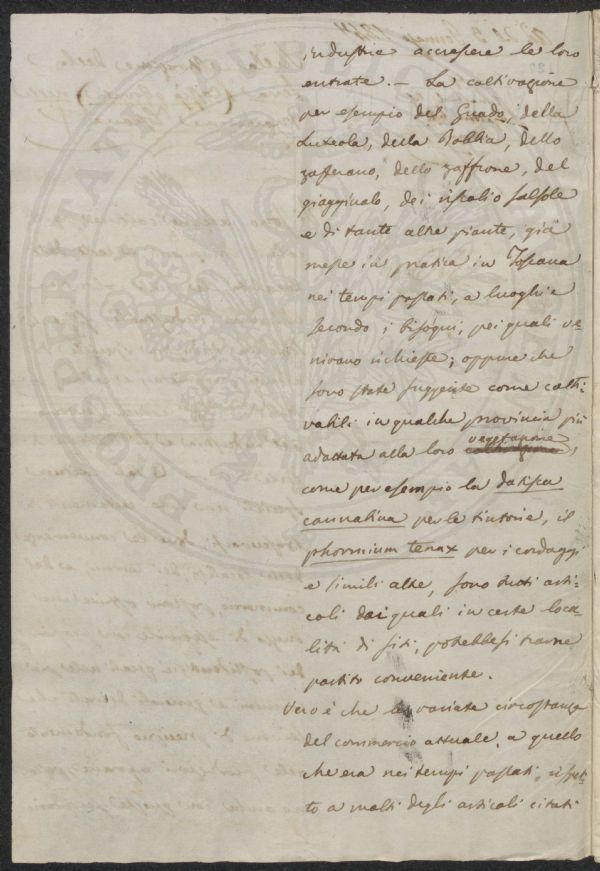 industrie accrescere le loro
entrate. — La coltivazione
per esempio del Guado, della
Luteola, della Robbia, dello
zafferano, dello zaffrone, del
giaggiuolo, dei salsole
e di tante altre piante, già
messe in pratica in Toscana
nei tempi passati, a luoghi e
secondo i bisogni, pei quali ve-
nivano richieste; oppure che
sono state suggerite come colti-
vabili in qualche provincia più
adattata alla loro vegetazione,
come per esempio la datisca
cannabina per le tintorie, il
phormium tenax per i cordaggi
e simili altre, sono tutti arti-
coli dai quali in certe loca-
lità di siti, potrebbesi trarne
partito conveniente.
Vero è che le variate circostanze
del commercio attuale, a quello
che era nei tempi passati, rispet-
to a molti degli articoli citati